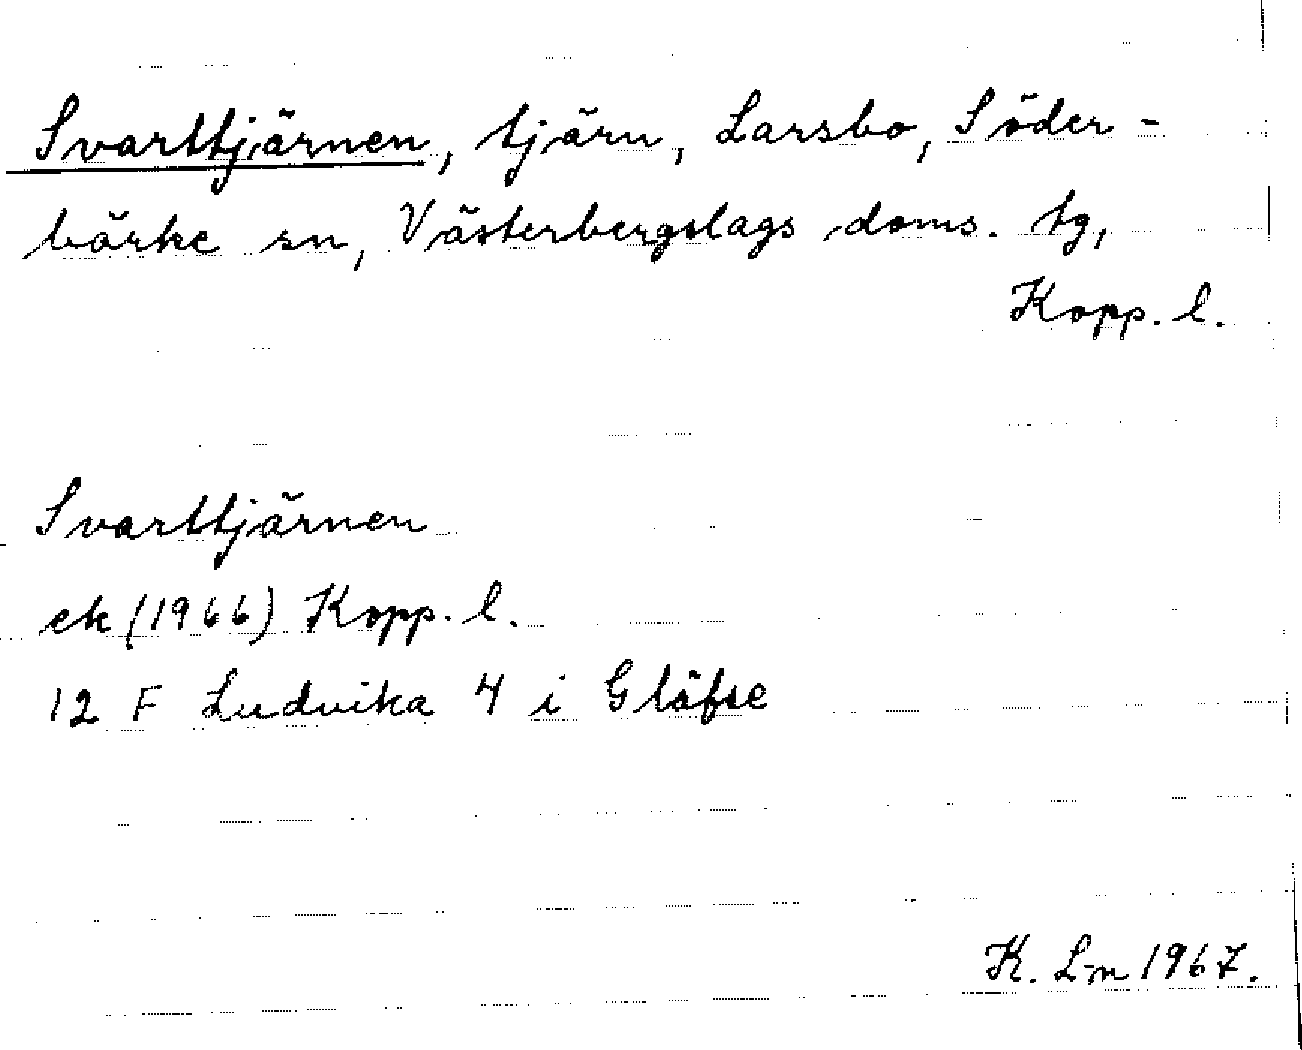 Svarttjärnen, tjärn, Larsbo, Söder-
bärke sn, Västerbergslags doms. tg,
Kopp. l.
Svarttjärnen
ek (1966) Kopp. l.
12 F Ludvika 4 i Gläfse
K. L-n 1967.